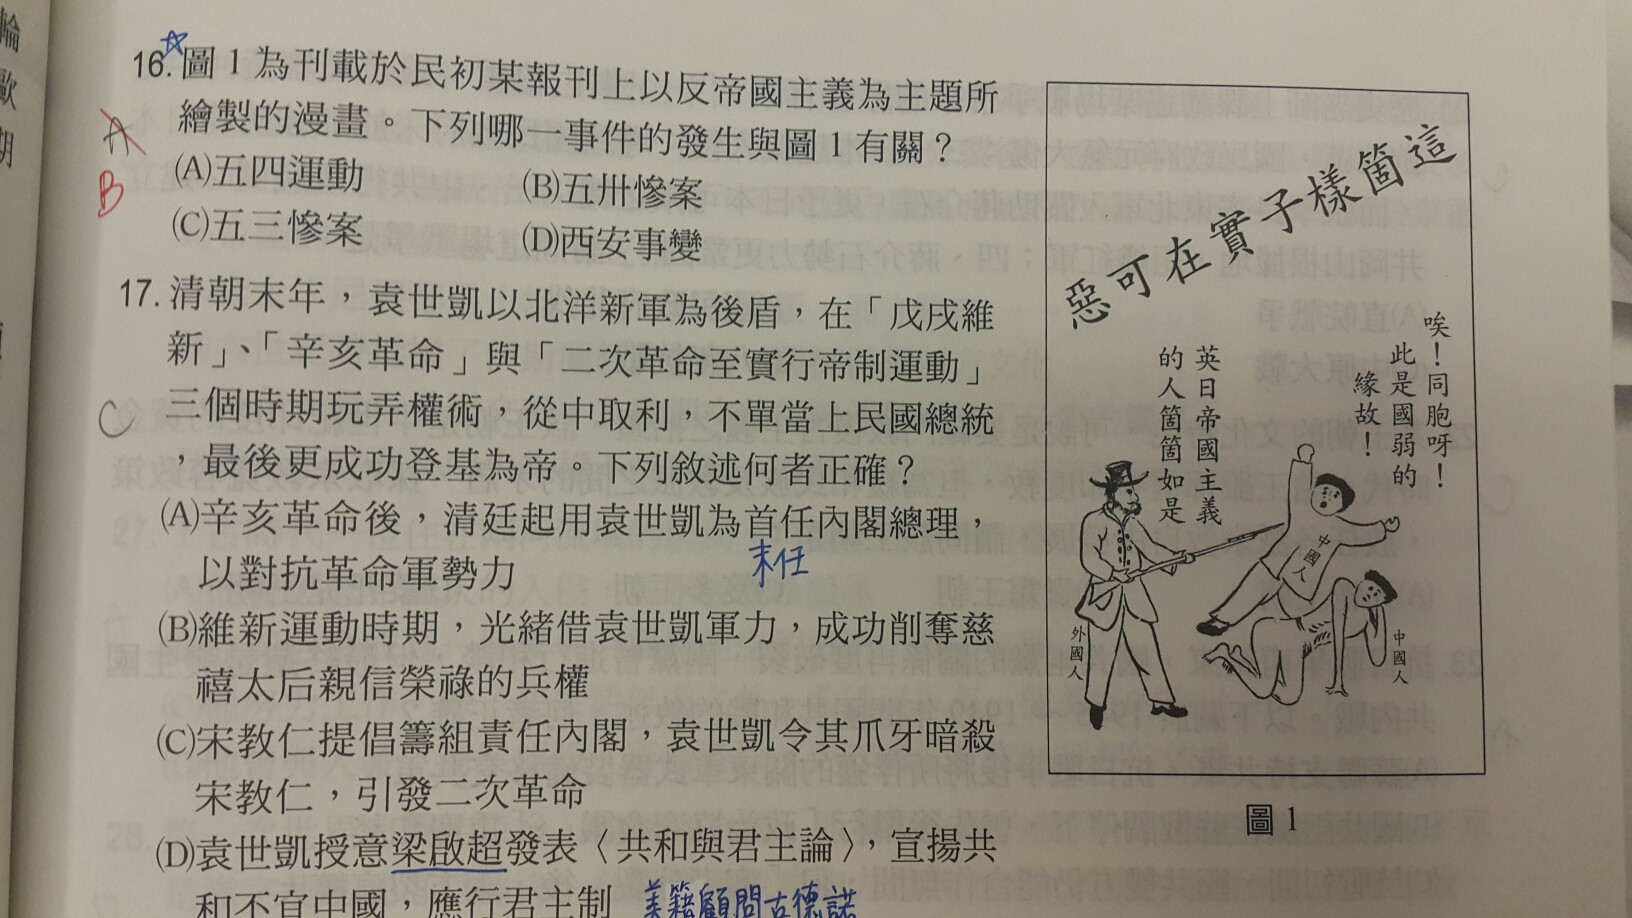 輪
歐
期
16.☆圖 1 為刊載於民初某報刊上以反帝國主義為主題所
繪製的漫畫。下列哪一事件的發生與圖 1 有關？
A
B
(A)五四運動 (B)五卅慘案
(C)五三慘案 (D)西安事變
17. 清朝末年，袁世凱以北洋新軍為後盾，在「戊戌維
新」、「辛亥革命」與「二次革命至實行帝制運動」
C
三個時期玩弄權術，從中取利，不單當上民國總統
，最後更成功登基為帝。下列敘述何者正確？
(A)辛亥革命後，清廷起用袁世凱為首任內閣總理，
末任
以對抗革命軍勢力
(B)維新運動時期，光緒借袁世凱軍力，成功削奪慈
禧太后親信榮祿的兵權
(C)宋教仁提倡籌組責任內閣，袁世凱令其爪牙暗殺
宋教仁，引發二次革命
(D)袁世凱授意梁啟超發表〈共和與君主論〉，宣揚共
和不宜中國，應行君主制 美籍顧問古德諾
這箇樣子實在可惡
唉！同胞呀！
此是國弱的
緣故！
英日帝國主義
的人箇箇如是
中國人
外國人
中國人
圖 1